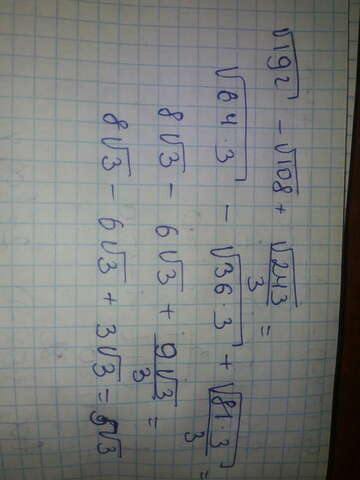 √192 - √108 + √243/3 =
√64·3 - √363 + √81·3/3 =
8√3 - 6√3 + 9√3/3 =
8√3 - 6√3 + 3√3 = 5√3